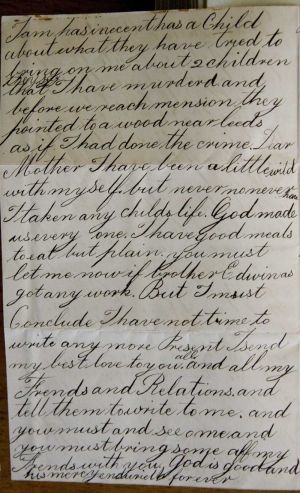 I am has inecent has a Child
about what they have tried to
bring on me about 2 children
that I have murderd and
before we reach mension they
pointed to a wood near leeds
as if I had done the crime. Dear
Mother I have been a little wild
with myself. but never no never
have
I taken any childs life. God made
us every one. I have good meals
to eat but plain. you must
let me now if brother Edwin as
got any work. But I must
Conclude I have not time to
write any more Present I send
my best love to you all and all my
Frends and Relations. and
tell them to write to me. and
you must and see ome and
you must bring some off my
Frends with you God is good and
his mercy endureth forever